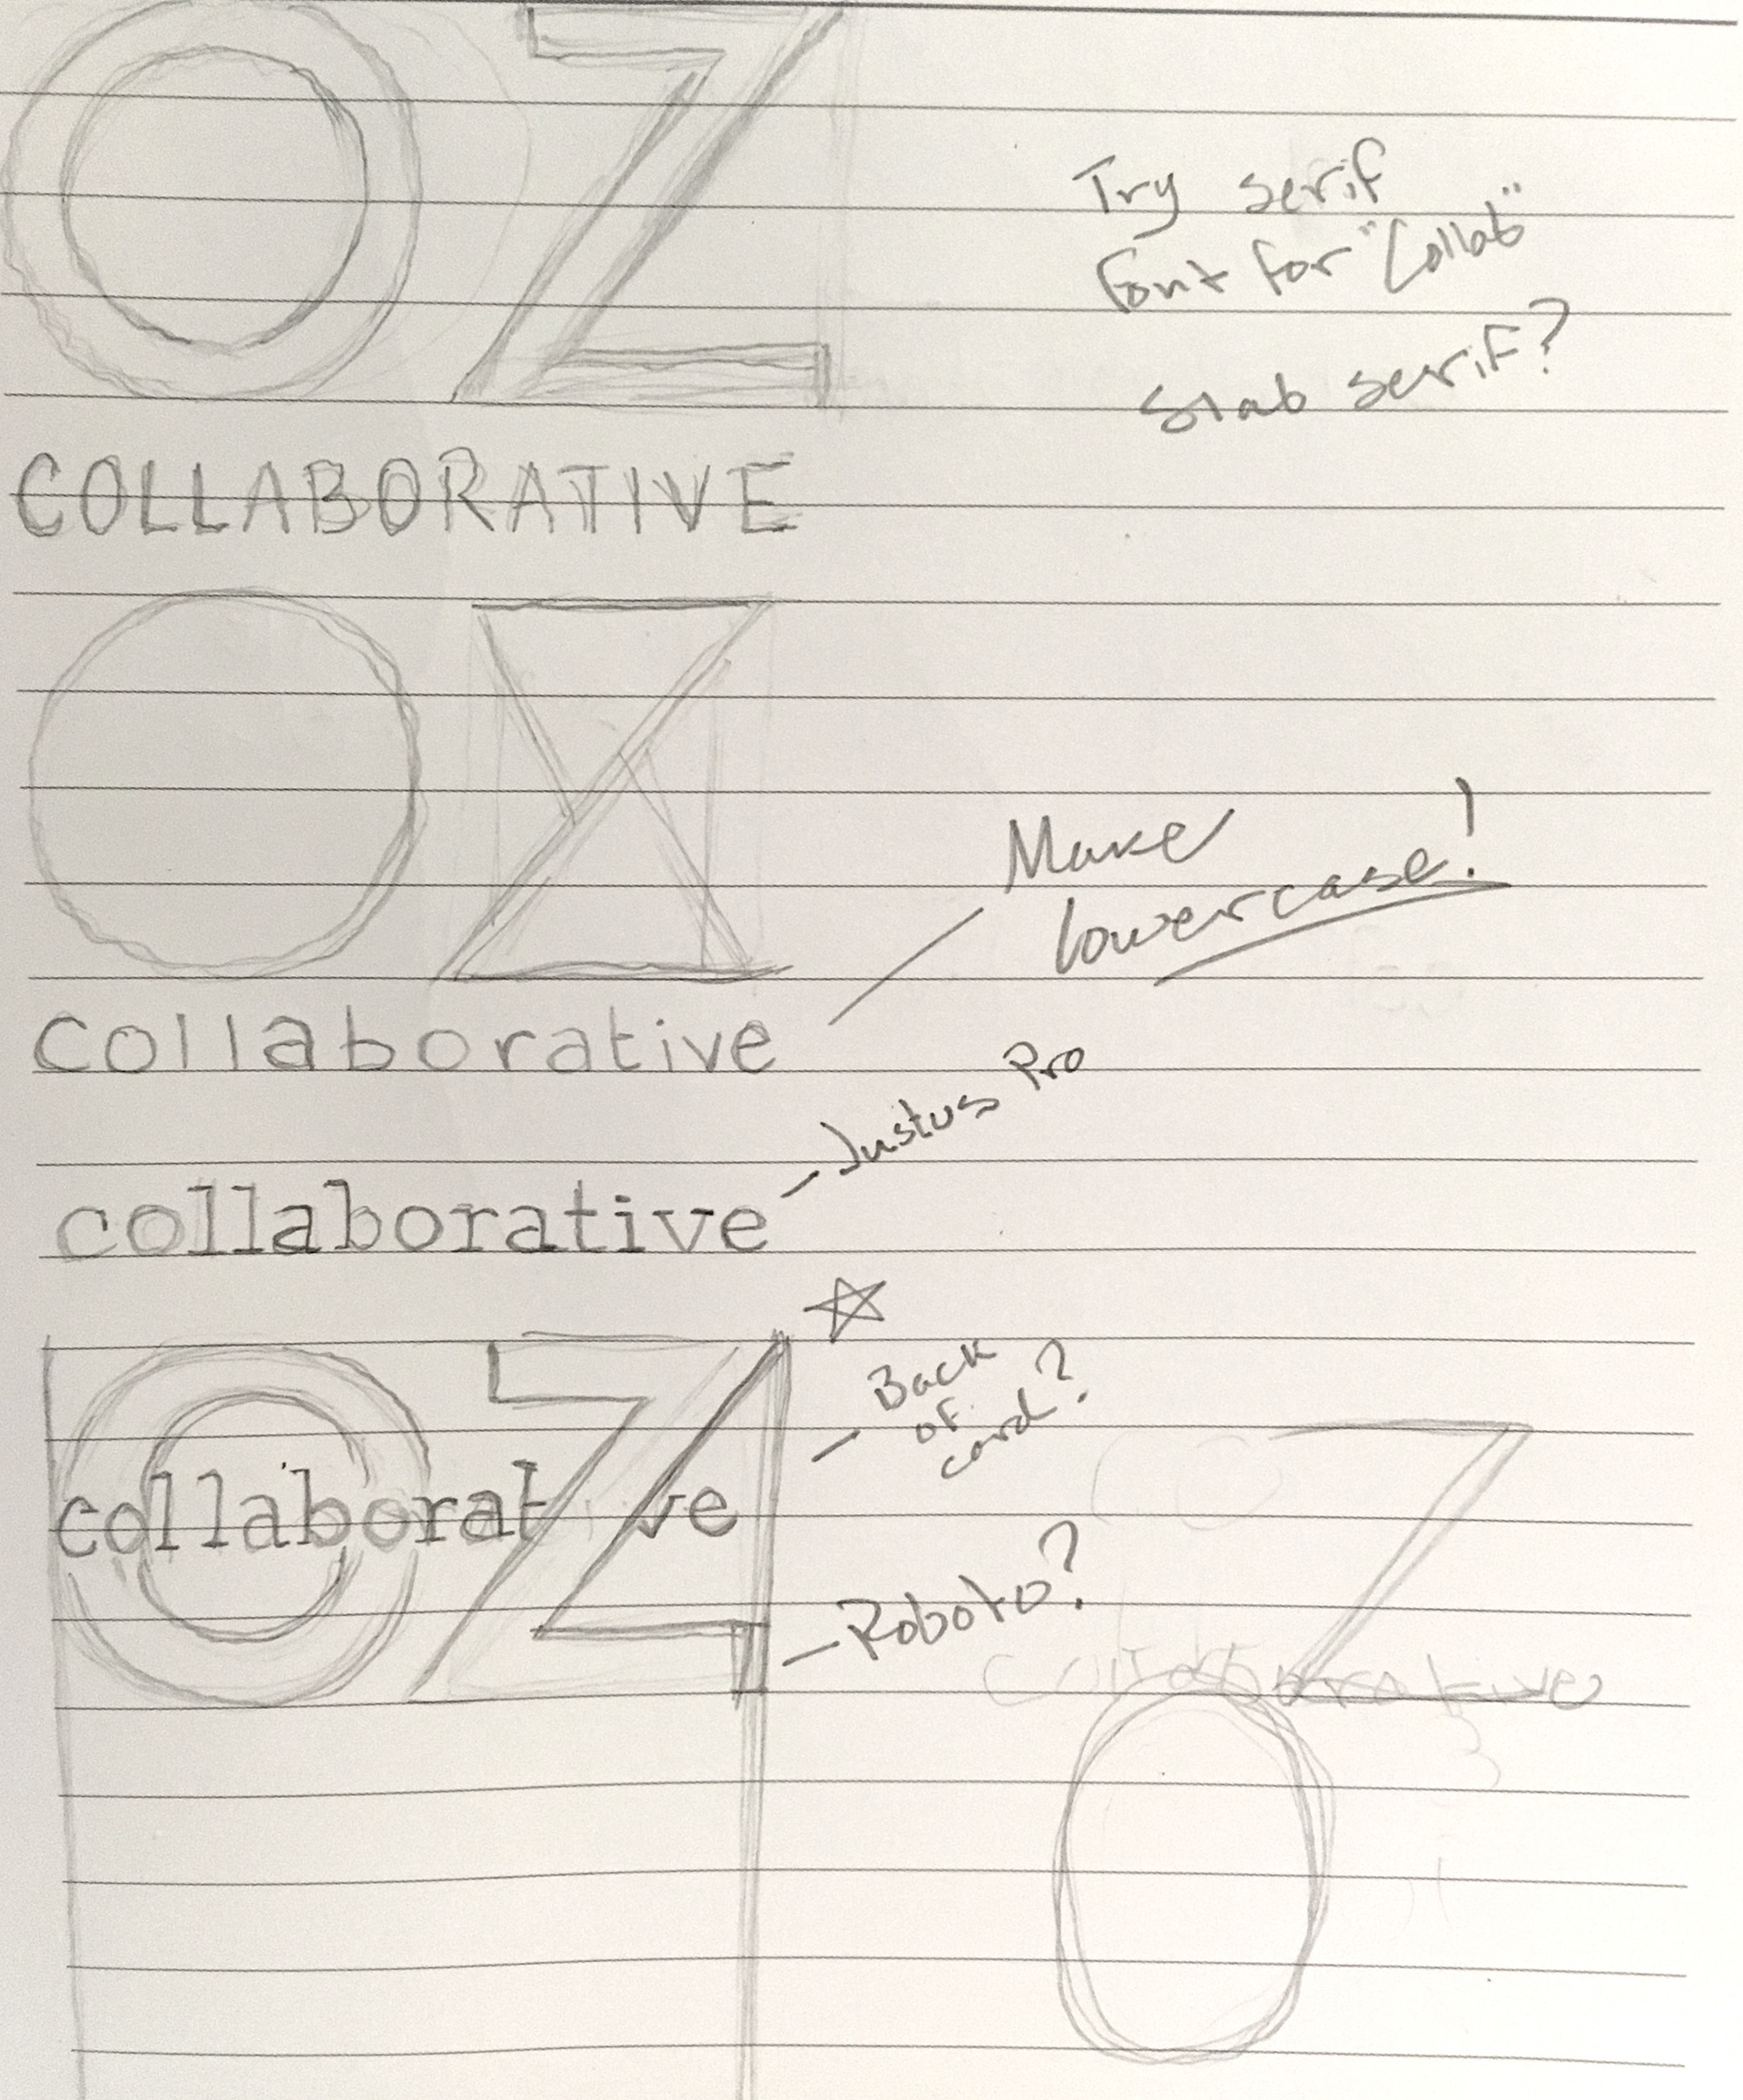 OZ
Try serif
font for "Collab"
Slab serif?
COLLABORATIVE
OZ
Make
lowercase!
collaborative
Justus Pro
collaborative
Back
of
card?
OZ
collaborative
Roboto?
Z
collaborative
O